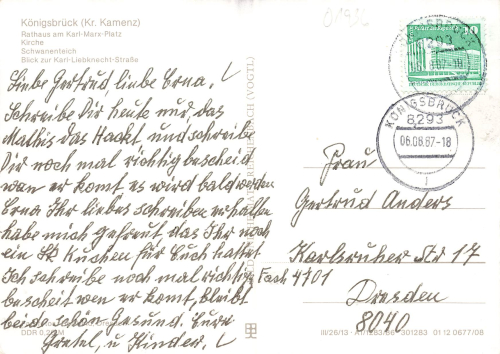 01932
Königsbrück (Kr. Kamenz)
Rathaus am Karl-Marx-Platz
Kirche
Schwanenteich
Blick zur Karl-Liebknecht-Straße
Liebe Gertrud, liebe Erna,
Schreibe Dir heute nur, das
Mathis das Hackt und schreibe
Dir noch mal richtig bescheid
wan er komt es wird bald werden
Erna Ihr liebes schreiben erhalten
habe mich gefreut das Ihr noch
ein St Kuchen für Euch hattet
Ich schreibe noch mal richtig
bescheit wen er komt, bleibt
beide schön Gesund. Eure
Gretel, u Kinder,
DDR
10
KÖNIGSBRÜCK
8293
06.08.87-18
Frau
Gertrud Anders
Karlsruher Str 17
Fach 4701
Dresden
8040
III/26/13
301283 01 12 0677/08